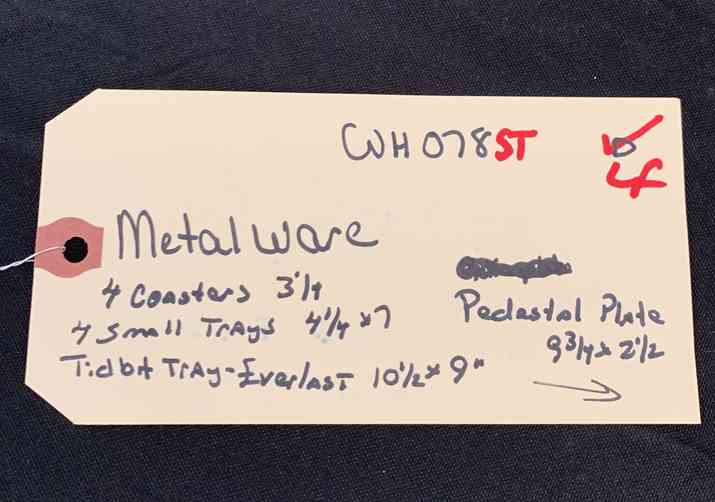 CWH078ST
LF
Metalware
4 Coasters 3 1/4
4 Small Trays 4 1/4 x 7
Tidbit Tray-Everlast 10 1/2 x 9"
Pedestal Plate
9 3/4 x 2 1/2